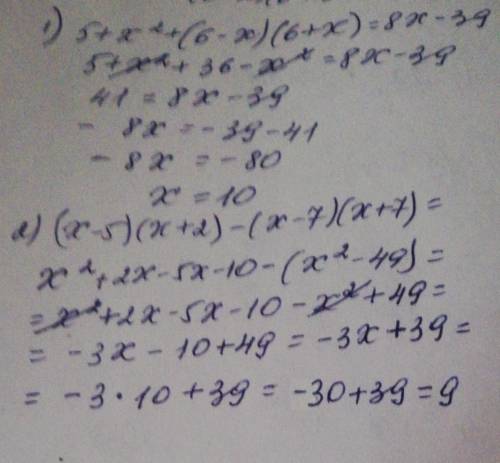 1) 5+x²+(6-x)(6+x)=8x-39
5+x²+36-x²=8x-39
41=8x-39
- 8x=-39-41
- 8x=-80
x=10
2) (x-5)(x+2)-(x-7)(x+7)=
x²+2x-5x-10-(x²-49)=
=x²+2x-5x-10-x²+49=
= -3x-10+49= -3x+39=
= -3·10+39= -30+39=9